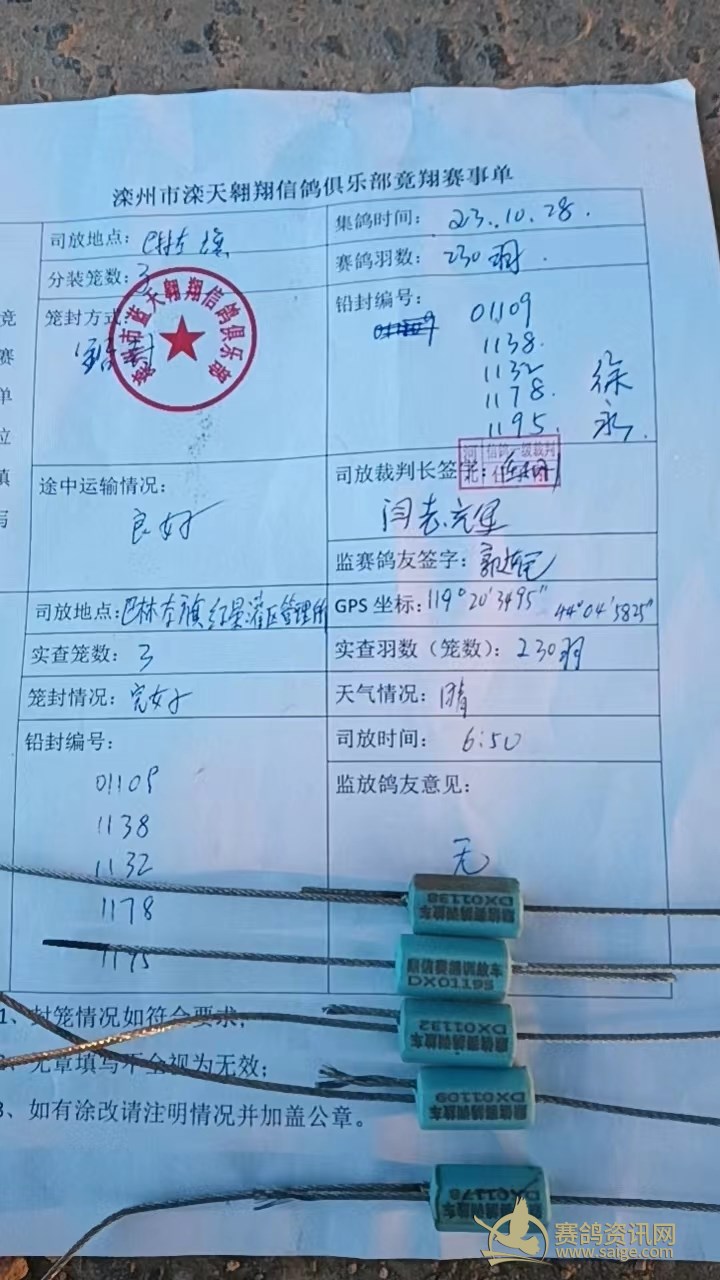 滦州市滦天翱翔信鸽俱乐部竟翔赛事单
司放地点：巴林左旗
集鸽时间：23.10.28.
分装笼数：3
赛鸽羽数：230羽.
竞
赛
单
位
填
写
笼封方式：
铅封
滦州市蓝天翱翔信鸽俱乐部
铅封编号：
01109
1138.
1132
1178.
1195.
徐
永.
途中运输情况：
良好
司放裁判长签字：
河北
信鸽一级裁判
监赛鸽友签字：
司放地点：巴林左旗红星灌区管理所
GPS 坐标：119°20′3495″ 44°04′5825″
实查笼数：3
实查羽数（笼数）：230羽
笼封情况：完好
天气情况：晴
铅封编号：
司放时间：6:50
01109
1138
1132
1178
1195
监放鸽友意见：
无
1、封笼情况如符合要求；
2、无章填写不全视为无效；
3、如有涂改请注明情况并加盖公章。
DX01138
鼎信赛鸽训放车
鼎信赛鸽训放车
DX01195
DX01132
鼎信赛鸽训放车
DX01109
鼎信赛鸽训放车
DX01178
鼎信赛鸽训放车
赛鸽资讯网
www.saige.com